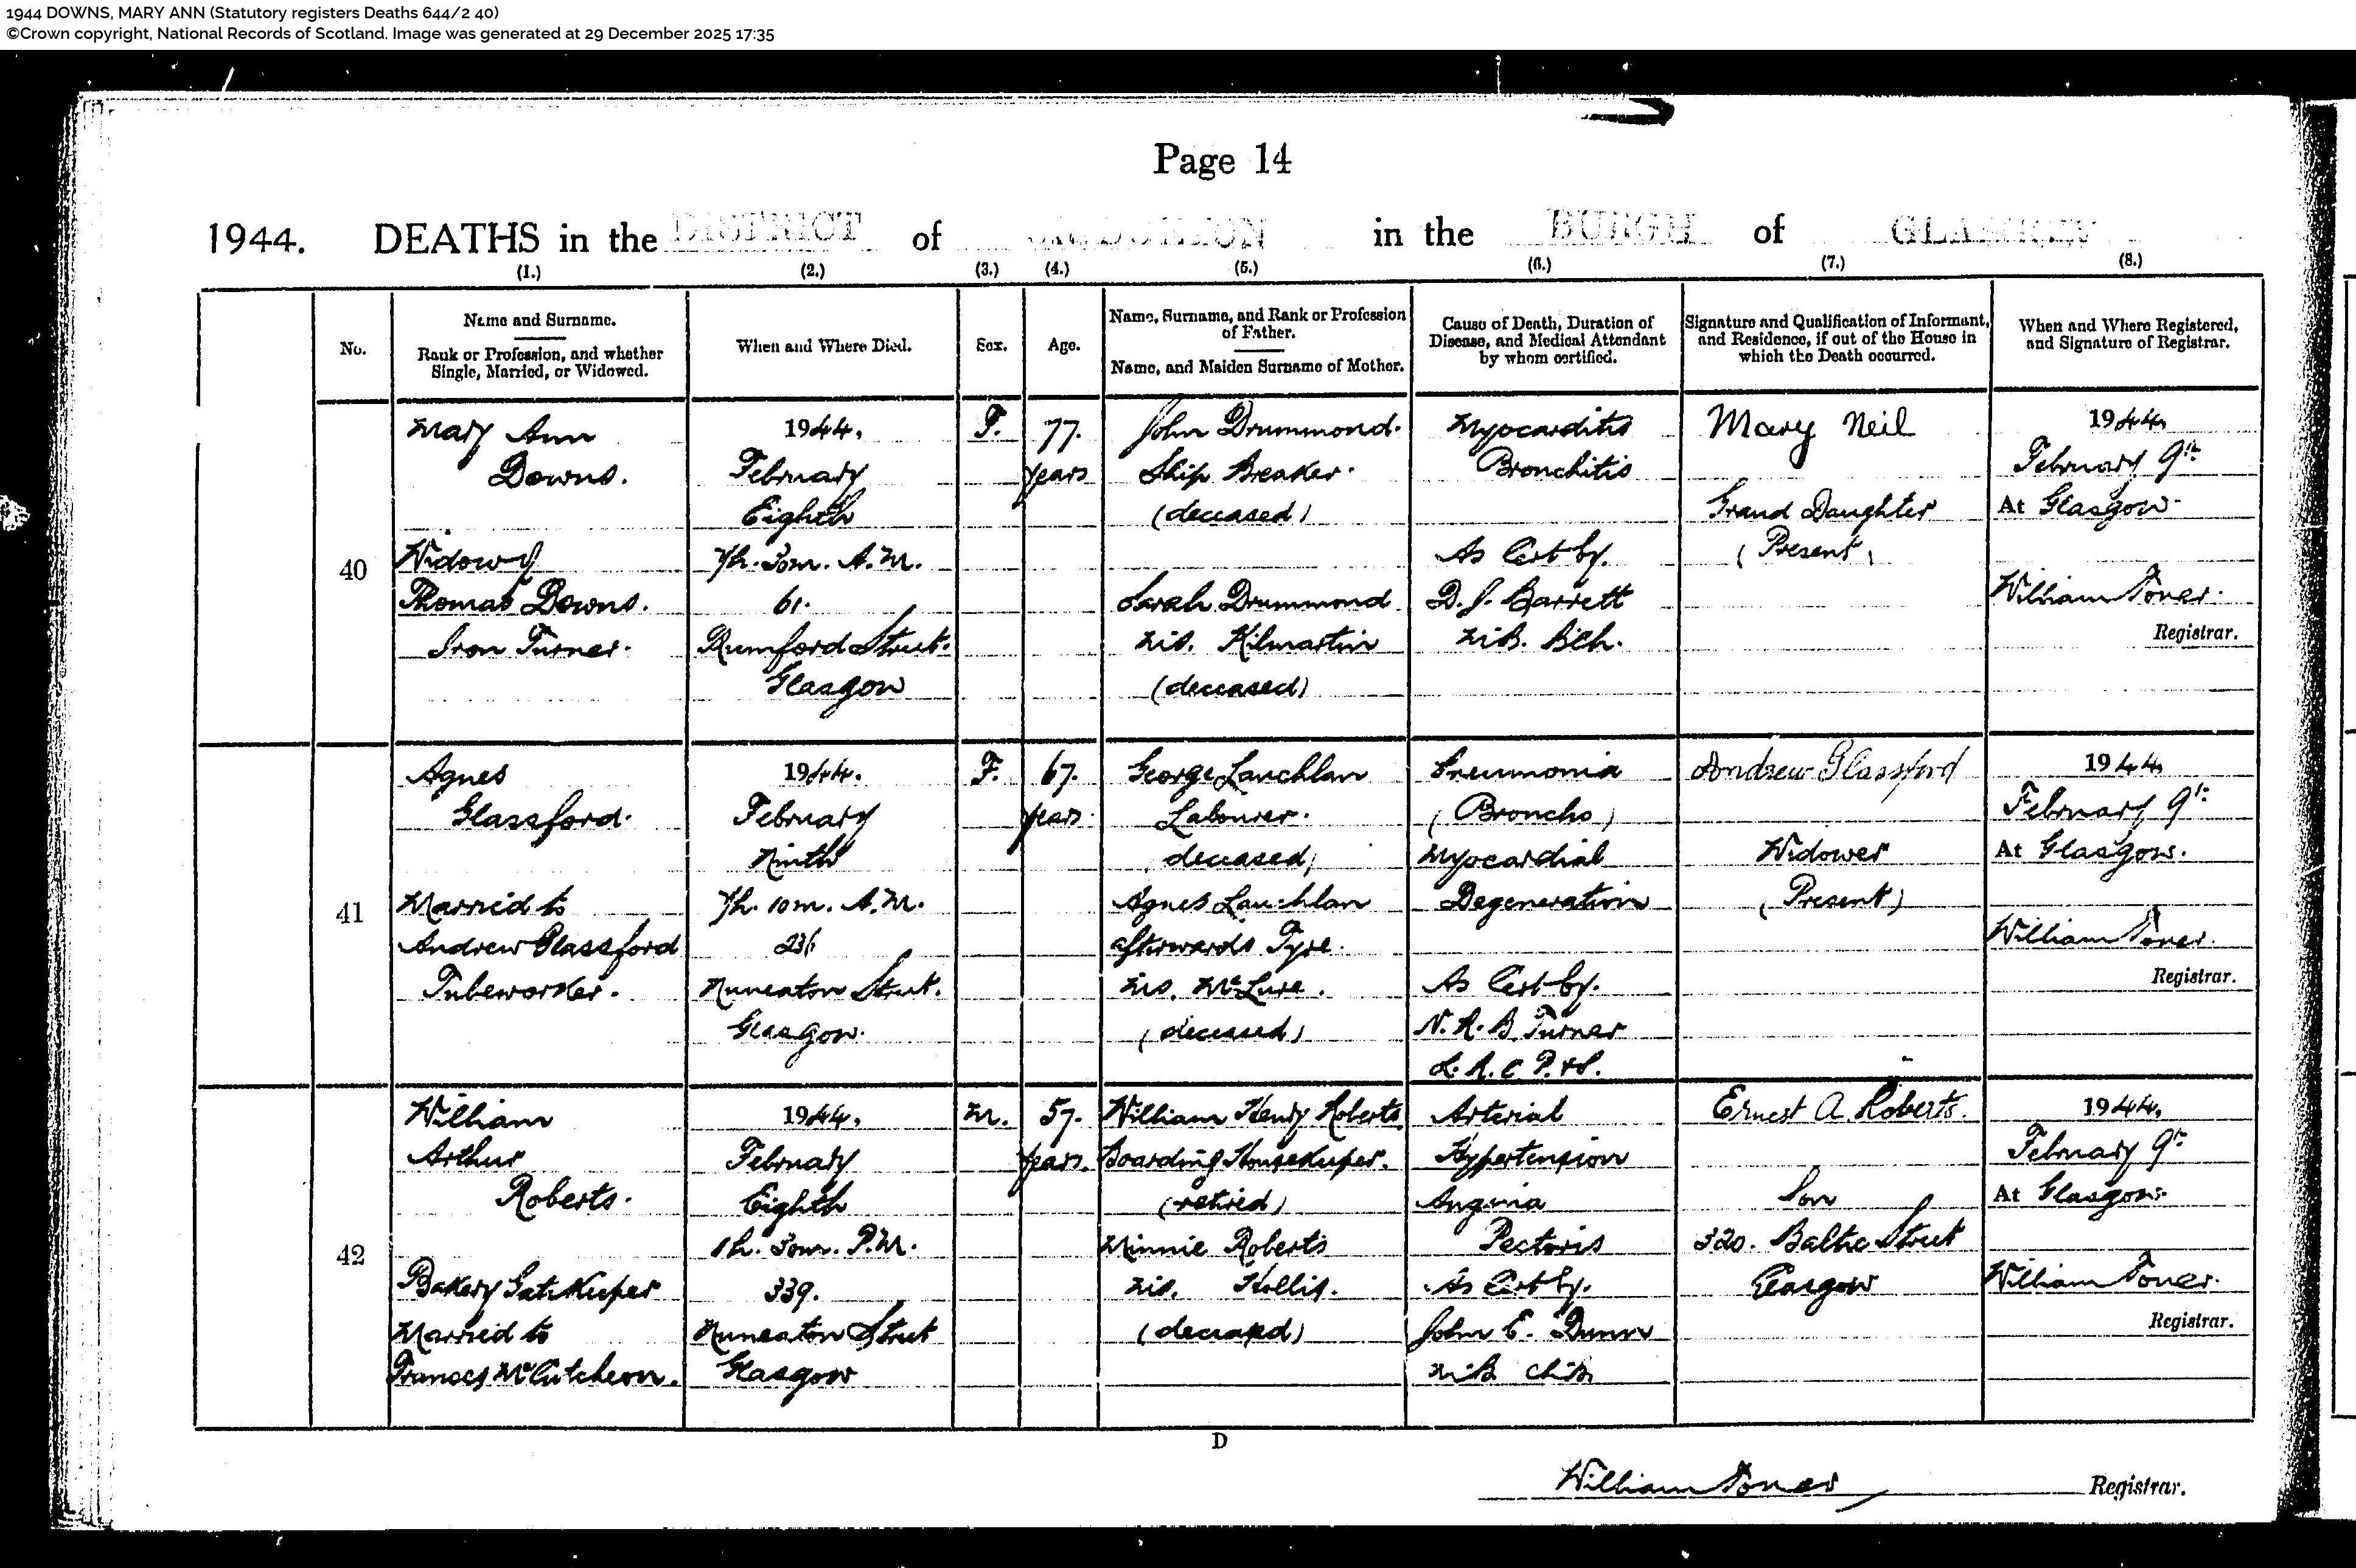 1944 DOWNS, MARY ANN (Statutory registers Deaths 644/2 40)
©Crown copyright, National Records of Scotland. Image was generated at 29 December 2025 17:35
Page 14
1944. DEATHS in the DISTRICT of in the BURGH of GLASGOW
(1.) (2.) (3.) (4.) (5.) (6.) (7.) (8.)
No.
Name and Surname.
Rank or Profession, and whether
Single, Married, or Widowed.
When and Where Died.
Sex.
Age.
Name, Surname, and Rank or Profession
of Father.
Name, and Maiden Surname of Mother.
Cause of Death, Duration of
Disease, and Medical Attendant
by whom certified.
Signature and Qualification of Informant,
and Residence, if out of the House in
which the Death occurred.
When and Where Registered,
and Signature of Registrar.
40
Mary Ann
Downs.
Widow of
Thomas Downs.
Iron Turner.
1944.
February
Eighth
7h. 30m. A.M.
61.
Rumford Street.
Glasgow
F.
77.
years
John Drummond.
Ship Breaker.
(deceased)
Sarah Drummond
M.S. Kilmartin
(deceased)
Myocarditis
Bronchitis
As Cert by.
D. J. Barrett
M.B. BCh.
Mary Neil
Grand Daughter
(Present)
1944
February 9th
At Glasgow.
William Toner.
Registrar.
41
Agnes
Glassford.
Married to
Andrew Glassford
Tubeworker.
1944.
February
Ninth
7h. 10m. A.M.
236
Nuneaton Street.
Glasgow.
F.
67.
years.
George Lauchlan
Labourer.
(deceased)
Agnes Lauchlan
afterwards Tyre.
M.S. McLure.
(deceased)
Pneumonia
(Broncho)
Myocardial
Degeneration
As Cert by.
N. R. B. Turner
L.R.C.P.&S.
Andrew Glassford
Widower
(Present)
1944
February 9th
At Glasgow.
William Toner.
Registrar.
42
William
Arthur
Roberts.
Bakery Gatekeeper
Married to
Frances McCutcheon.
1944.
February
Eighth
1h. 30m. P.M.
339.
Nuneaton Street
Glasgow
M.
57.
years.
William Henry Roberts.
Boarding Housekeeper.
(retired)
Minnie Roberts
M.S. Hollis.
(deceased)
Arterial
Hypertension
Angina
Pectoris
As Cert by.
John C. Dunn
M.B. Ch.B.
Ernest A. Roberts.
Son
320. Baltic Street
Glasgow
1944.
February 9th
At Glasgow.
William Toner.
Registrar.
D
William Toner
Registrar.